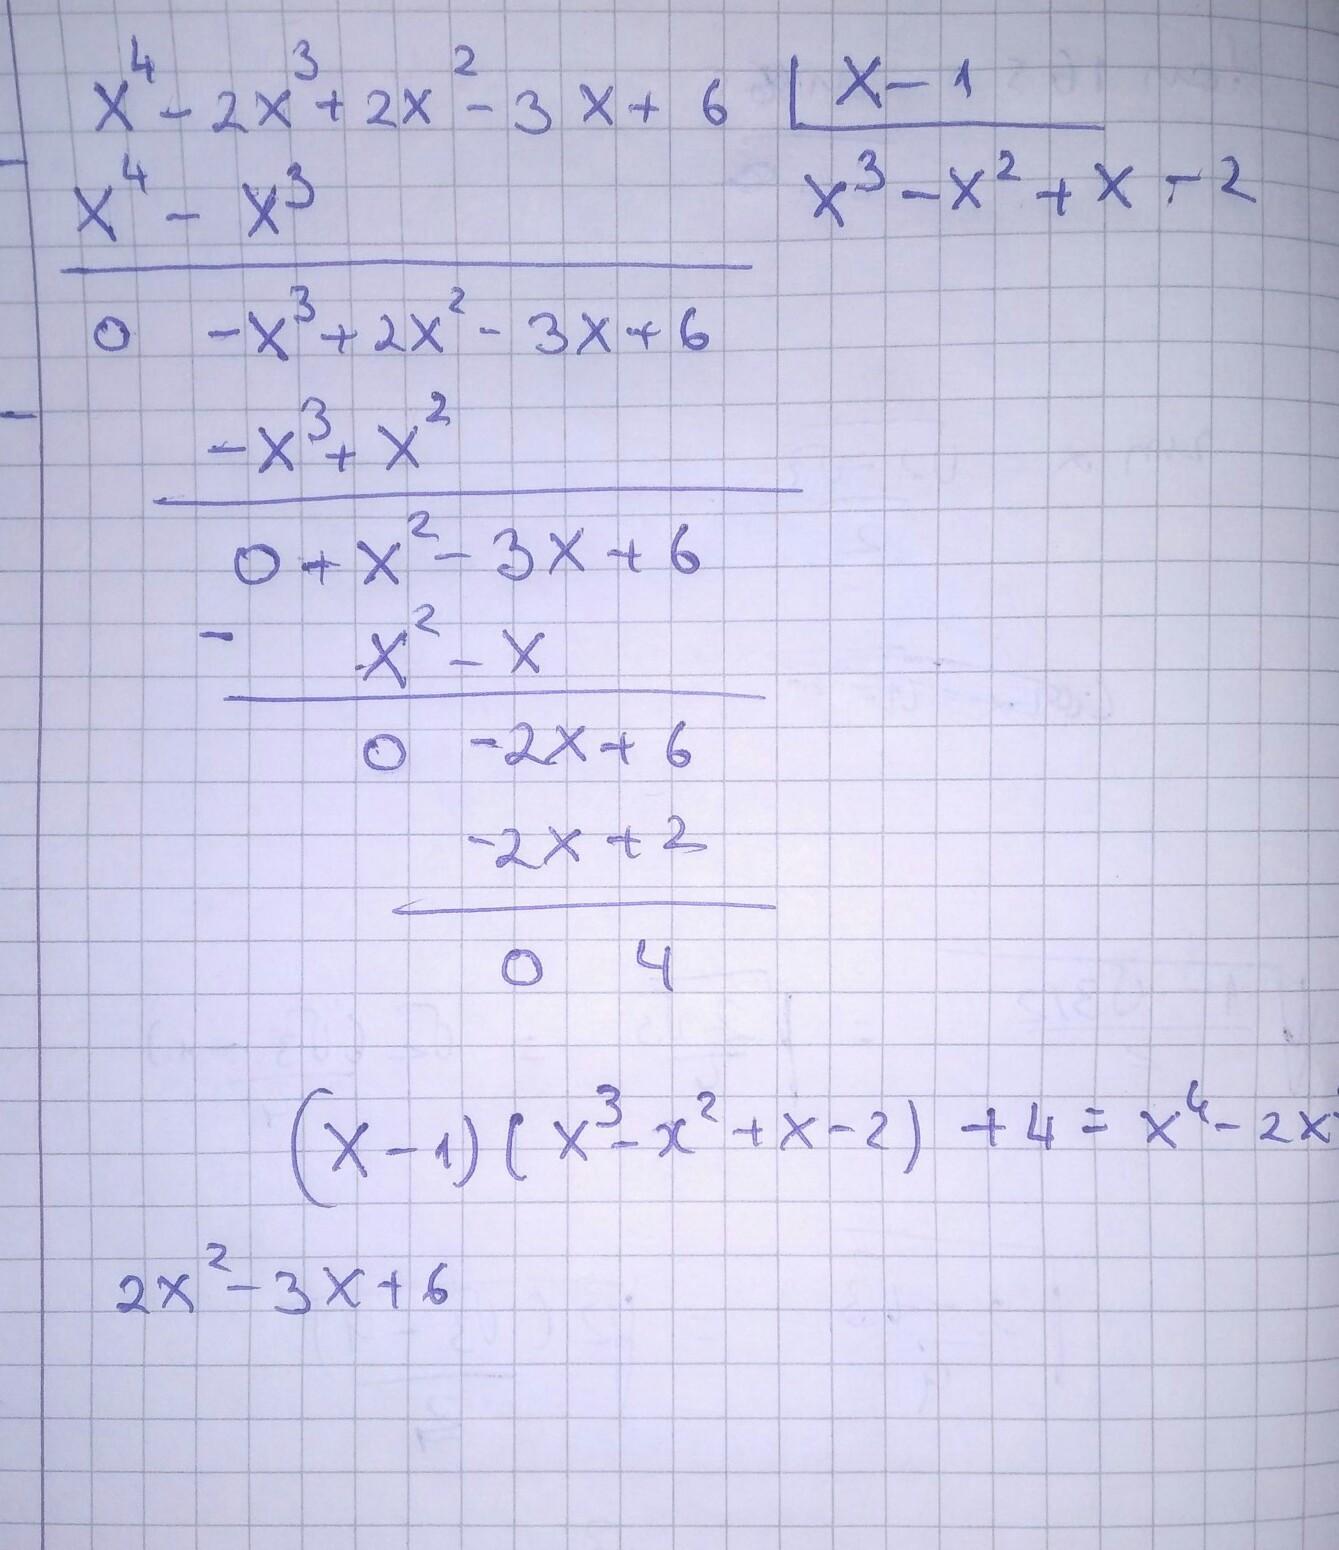 x⁴ - 2x³ + 2x² - 3x + 6 | x - 1
x⁴ - x³
x³ - x² + x - 2
0 -x³ + 2x² - 3x + 6
-
-x³ + x²
0 + x² - 3x + 6
- x² - x
0 -2x + 6
-2x + 2
0 4
(x - 1)(x³ - x² + x - 2) + 4 = x⁴ - 2x
2x² - 3x + 6